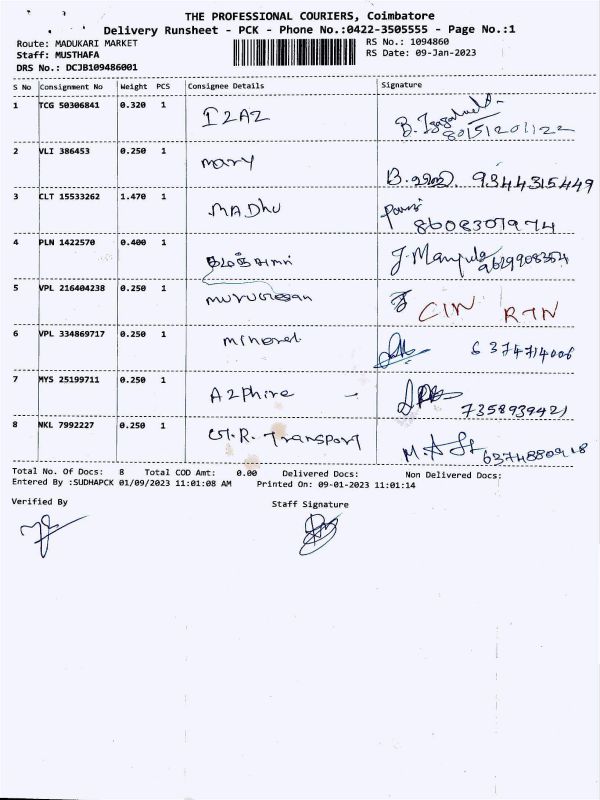 THE PROFESSIONAL COURIERS, Coimbatore
Delivery Runsheet - PCK - Phone No.:0422-3505555 - Page No.:1
Route: MADUKARI MARKET RS No.: 1094860
Staff: MUSTHAFA RS Date: 09-Jan-2023
DRS No.: DCJB109486001
S No Consignment No Weight PCS Consignee Details Signature
1 TCG 50306841 0.320 1 IZAZ B. 80151201122
2 VLI 386453 0.250 1 mary B. 9344315449
3 CLT 15533262 1.470 1 MADhu 8608307974
4 PLN 1422570 0.400 1 J. Manjula 9629908354
5 VPL 216404238 0.250 1 murugesan CIN RTN
6 VPL 334869717 0.250 1 6374714006
7 MYS 25199711 0.250 1 A2Phire - 7358939421
8 NKL 7992227 0.250 1 R. Transport M.A 6374880918
Total No. Of Docs: 8 Total COD Amt: 0.00 Delivered Docs: Non Delivered Docs:
Entered By :SUDHAPCK 01/09/2023 11:01:08 AM Printed On: 09-01-2023 11:01:14
Verified By Staff Signature